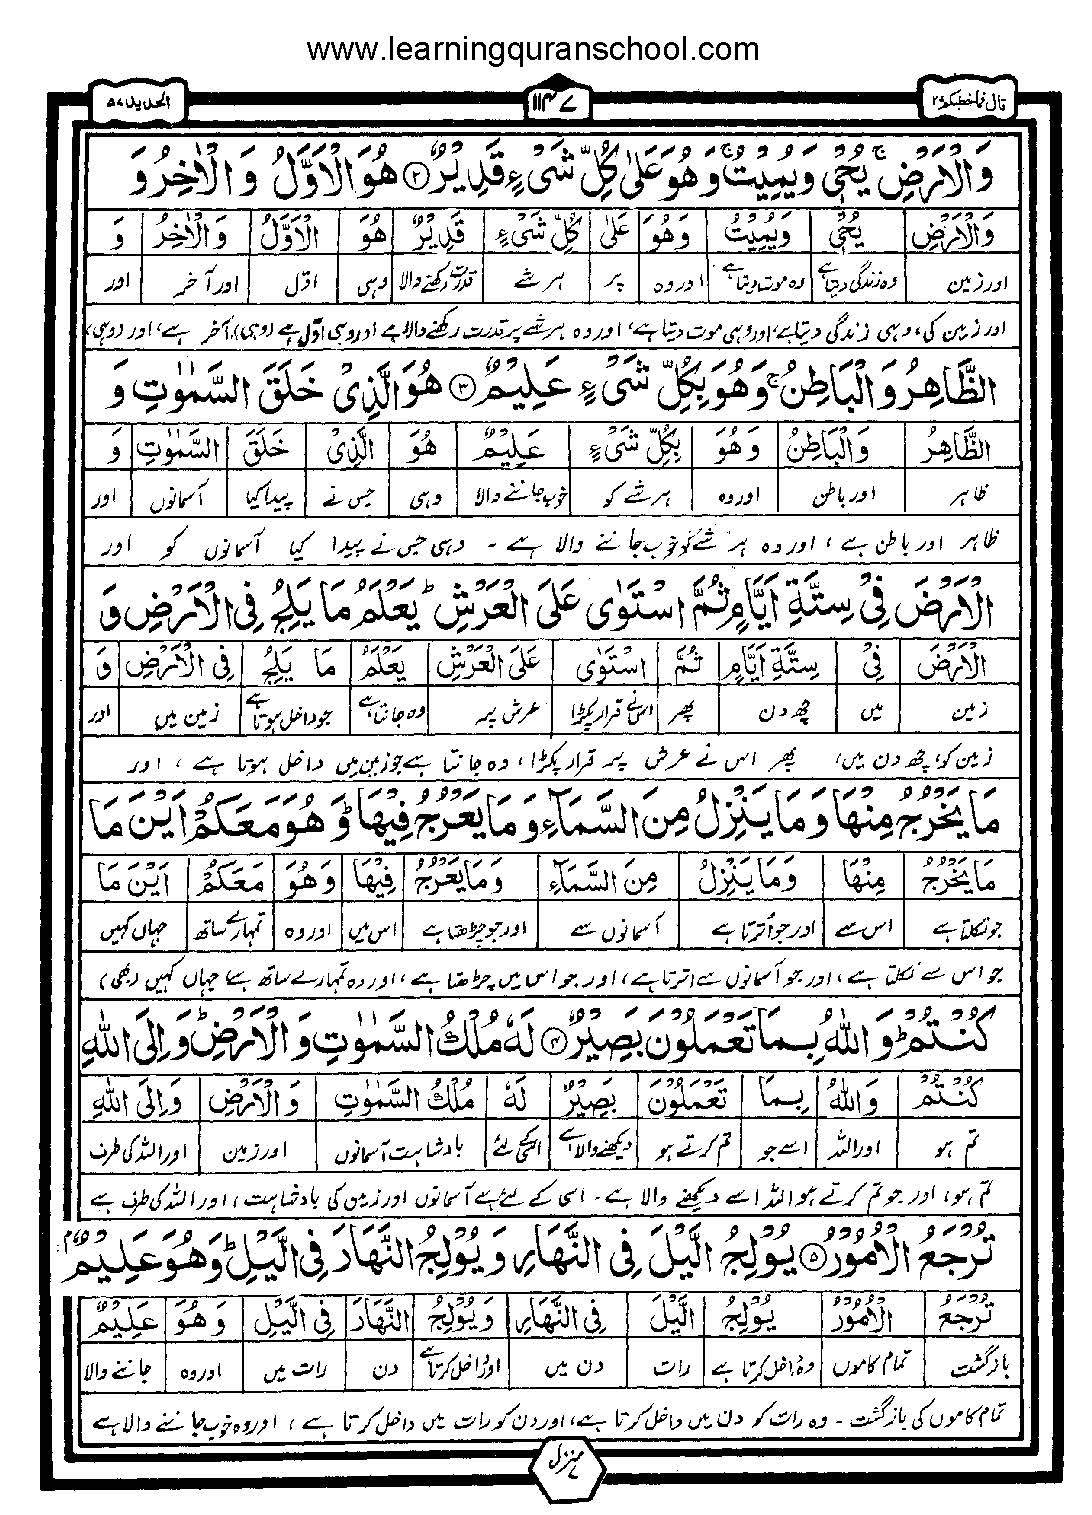 www.learningquranschool.com
قال فما خطبکم ۲۷
۱۱۴۷
الحدید ۵۷
وَالْاَرْضِ ۚ یُحْیٖ وَیُمِیْتُ ۚ وَهُوَ عَلٰى كُلِّ شَیْءٍ قَدِیْرٌ ۝۲ هُوَ الْاَوَّلُ وَ الْاٰخِرُ وَ
وَالْاَرْضِ یُحْیٖ وَیُمِیْتُ وَهُوَ عَلٰى كُلِّ شَیْءٍ قَدِیْرٌ هُوَ الْاَوَّلُ وَالْاٰخِرُ وَ
اور زمین وہ زندگی دیتا ہے وہ موت دیتا ہے اور وہ پر ہر شے قدرت رکھنے والا وہی اوّل اور آخر اور
اور زمین کی، وہی زندگی دیتا ہے، اور وہی موت دیتا ہے، اور وہ ہر شے پر قدرت رکھنے والا ہے (اور وہی) اوّل ہے (وہی) آخر ہے، اور (وہی)،
الظَّاهِرُ وَ الْبَاطِنُ ۚ وَهُوَ بِكُلِّ شَیْءٍ عَلِیْمٌ ۝۳ هُوَ الَّذِیْ خَلَقَ السَّمٰوٰتِ وَ
الظَّاهِرُ وَالْبَاطِنُ وَهُوَ بِكُلِّ شَیْءٍ عَلِیْمٌ هُوَ الَّذِیْ خَلَقَ السَّمٰوٰتِ وَ
ظاہر اور باطن اور وہ ہر شے کو خوب جاننے والا وہی جس نے پیدا کیا آسمانوں اور
ظاہر اور باطن ہے، اور وہ ہر شے کو خوب جاننے والا ہے ۔ وہی جس نے پیدا کیا آسمانوں کو اور
الْاَرْضَ فِیْ سِتَّةِ اَیَّامٍ ثُمَّ اسْتَوٰى عَلَى الْعَرْشِ ؕ یَعْلَمُ مَا یَلِجُ فِی الْاَرْضِ وَ
الْاَرْضَ فِیْ سِتَّةِ اَیَّامٍ ثُمَّ اسْتَوٰى عَلَى الْعَرْشِ یَعْلَمُ مَا یَلِجُ فِی الْاَرْضِ وَ
زمین میں چھ دن پھر اس نے قرار پکڑا عرش پر وہ جانتا ہے جو داخل ہوتا ہے زمین میں اور
زمین کو، چھ دن میں، پھر اس نے عرش پر قرار پکڑا، وہ جانتا ہے جو زمین میں داخل ہوتا ہے، اور
مَا یَخْرُجُ مِنْهَا وَ مَا یَنْزِلُ مِنَ السَّمَآءِ وَ مَا یَعْرُجُ فِیْهَا ؕ وَ هُوَ مَعَكُمْ اَیْنَ مَا
مَا یَخْرُجُ مِنْهَا وَمَا یَنْزِلُ مِنَ السَّمَآءِ وَمَا یَعْرُجُ فِیْهَا وَهُوَ مَعَكُمْ اَیْنَ مَا
جو نکلتا ہے اس سے اور جو اُترتا ہے آسمانوں سے اور جو چڑھتا ہے اس میں اور وہ تمہارے ساتھ جہاں کہیں
جو اس سے نکلتا ہے، اور جو آسمانوں سے اترتا ہے، اور جو اس میں چڑھتا ہے، اور وہ تمہارے ساتھ ہے، جہاں کہیں (بھی)
كُنْتُمْ ؕ وَ اللّٰهُ بِمَا تَعْمَلُوْنَ بَصِیْرٌ ۝۴ لَهٗ مُلْكُ السَّمٰوٰتِ وَ الْاَرْضِ ؕ وَ اِلَى اللّٰهِ
كُنْتُمْ وَاللّٰهُ بِمَا تَعْمَلُوْنَ بَصِیْرٌ لَهٗ مُلْكُ السَّمٰوٰتِ وَالْاَرْضِ وَاِلَى اللّٰهِ
تم ہو اور اللہ اسے جو تم کرتے ہو دیکھنے والا ہے اسکے لئے بادشاہت آسمانوں اور زمین اور اللہ کی طرف
تم ہو، اور جو تم کرتے ہو اللہ اسے دیکھنے والا ہے ۔ اسی کے لئے ہے آسمانوں اور زمین کی بادشاہت، اور اللہ کی طرف ہے
تُرْجَعُ الْاُمُوْرُ ۝۵ یُوْلِجُ الَّیْلَ فِی النَّهَارِ وَ یُوْلِجُ النَّهَارَ فِی الَّیْلِ ؕ وَ هُوَ عَلِیْمٌۢ
تُرْجَعُ الْاُمُوْرُ یُوْلِجُ الَّیْلَ فِی النَّهَارِ وَیُوْلِجُ النَّهَارَ فِی الَّیْلِ وَهُوَ عَلِیْمٌ
بازگشت تمام کاموں وہ داخل کرتا ہے رات دن میں اور داخل کرتا ہے دن رات میں اور وہ جاننے والا
تمام کاموں کی بازگشت ۔ وہ رات کو دن میں داخل کرتا ہے، اور دن کو رات میں داخل کرتا ہے، اور وہ خوب جاننے والا ہے
منزل ۷